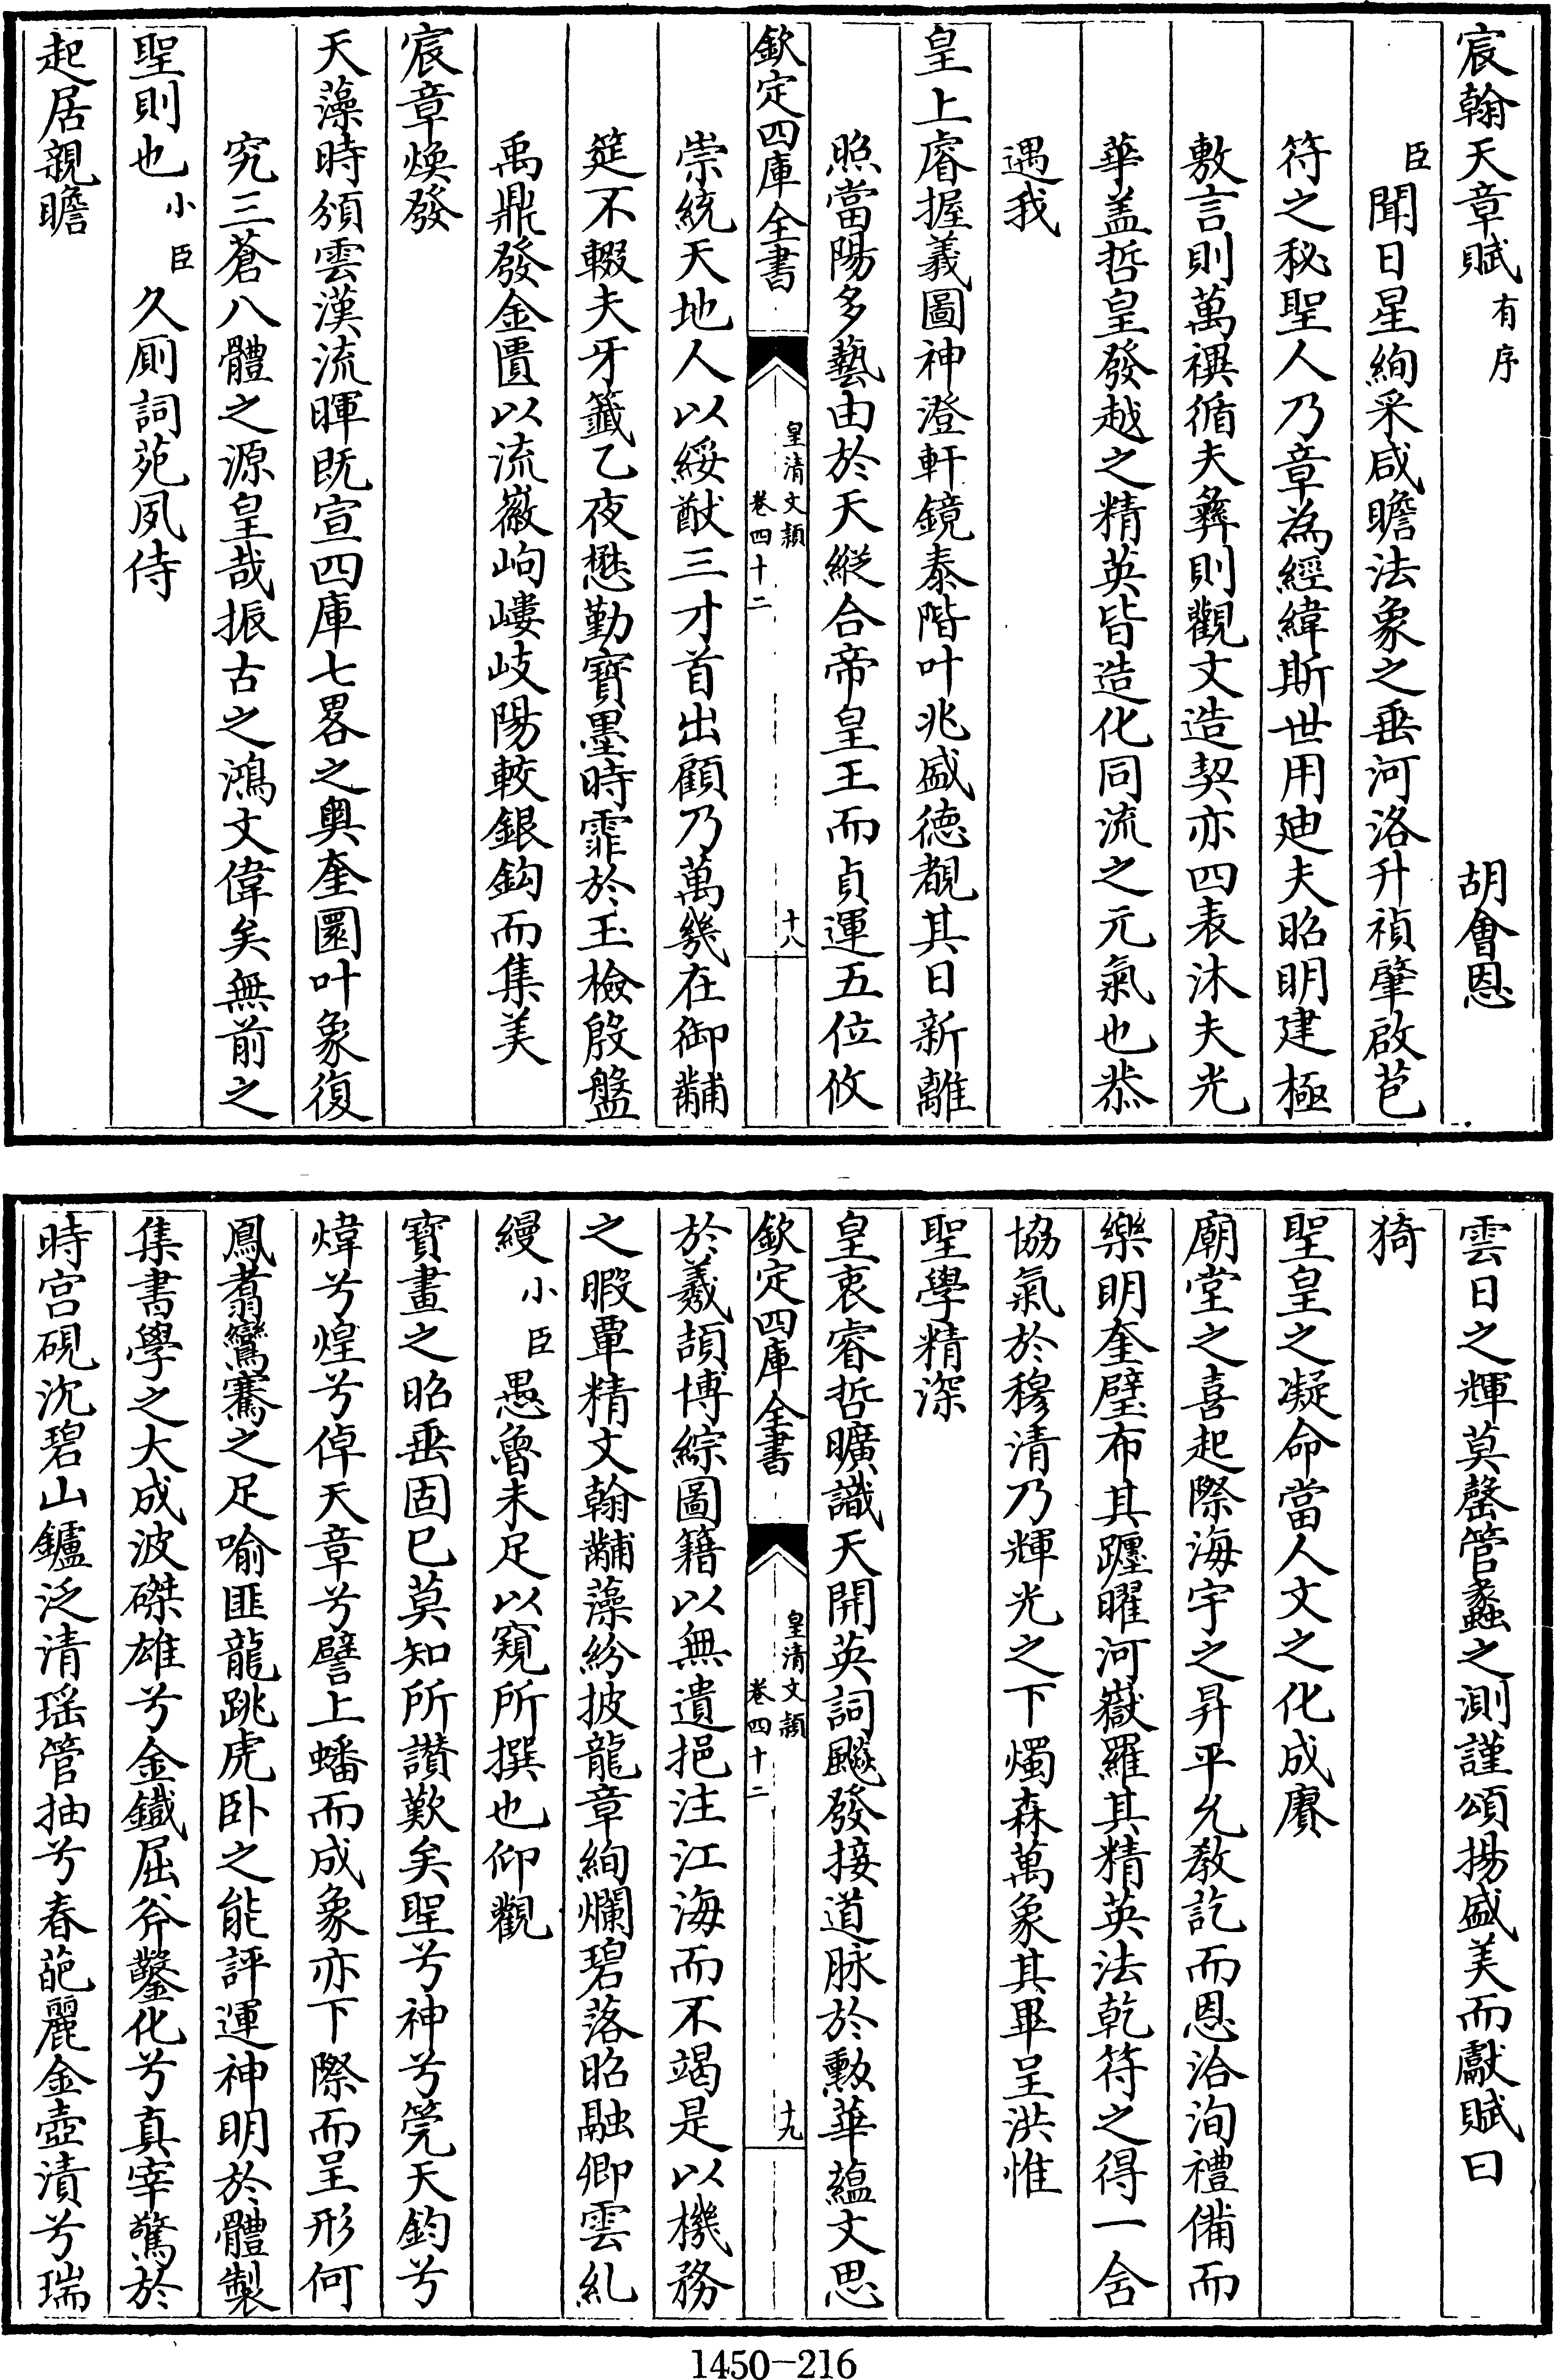 宸翰天章賦有序　胡會恩
臣聞日星絢采咸瞻法象之垂河洛升禎肇啟苞
符之秘聖人乃章為經緯斯世用廸夫昭明建極
敷言則萬禩循夫彝則觀文造契亦四表沐夫光
華盖哲皇發越之精英皆造化同流之元氣也恭
遇我
皇上睿握羲圖神澄軒鏡泰階叶兆盛德覩其日新離
照當陽多藝由於天縱合帝皇王而貞運五位攸
欽定四庫全書
皇清文頴
卷四十二
十八
崇統天地人以綏猷三才首出顧乃萬幾在御黼
筵不輟夫牙籖乙夜懋勤寳墨時霏於玉檢殷盤
禹鼎發金匱以流徽岣嶁岐陽較銀鈎而集美
宸章煥發
天藻時頒雲漢流暉既宣四庫七畧之奥奎圜叶象復
究三蒼八體之源皇哉振古之鴻文偉矣無前之
聖則也小臣久厠詞苑夙侍
起居親瞻
雲日之輝莫罄管蠡之測謹頌揚盛美而獻賦曰
猗
聖皇之凝命當人文之化成賡
廟堂之喜起際海宇之昇平允教訖而恩洽洵禮備而
樂明奎璧布其躔曜河嶽羅其精英法乾符之得一含
協氣於穆清乃輝光之下燭森萬象其畢呈洪惟
聖學精深
皇衷睿哲曠識天開英詞飈發接道脉於勲華蘊文思
欽定四庫全書
皇清文頴
卷四十二
十九
於羲頡博綜圖籍以無遺挹注江海而不竭是以機務
之暇覃精文翰黼藻紛披龍章絢爛碧落昭融卿雲糺
縵小臣愚魯未足以窺所撰也仰觀
寳畫之昭垂固已莫知所讃歎矣聖兮神兮筦天鈞兮
煒兮煌兮倬天章兮譬上蟠而成象亦下際而呈形何
鳳翥鸞騫之足喻匪龍跳虎卧之能評運神明於體製
集書學之大成波磔雄兮金鐵屈斧鑿化兮真宰驚於
時宫硯沉碧山鑪泛清瑶管抽兮春葩麗金壺漬兮瑞
1450-216